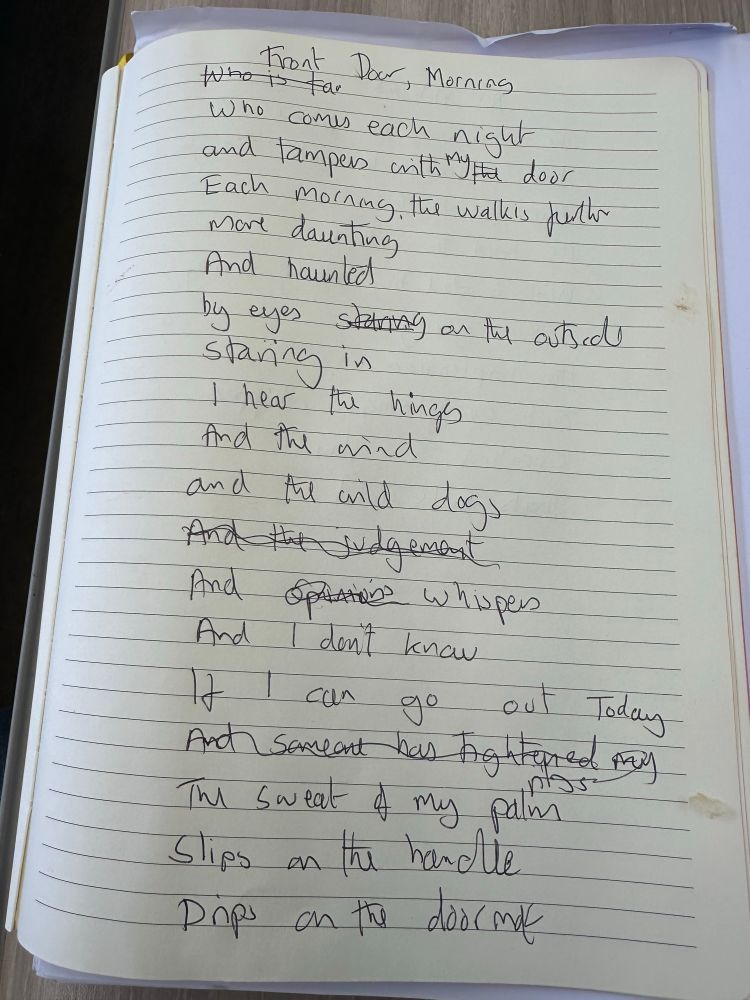 Front Door, Morning
Who is far
Who comes each night
and tampers with my the door
Each morning, the walk is further
more daunting
And haunted
by eyes staring on the outside
staring in
I hear the hinges
And the wind
and the wild dogs
And the judgement
And opinions whispers
And I don't know
If I can go out Today
And someone has tightened my
The sweat of my palm
Slips on the handle
Drips on the doormat